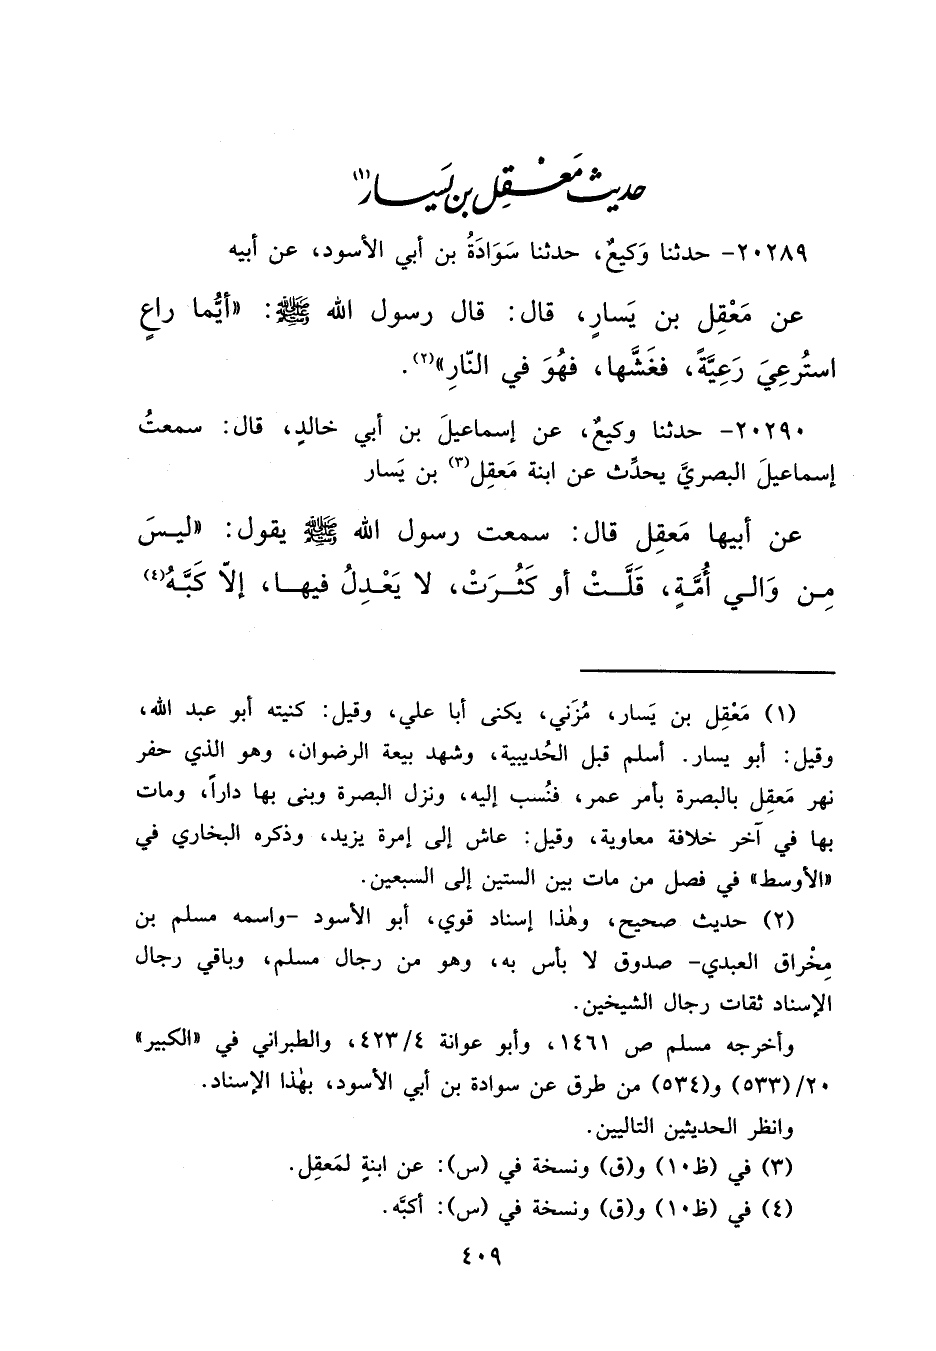 حديث مَعْقِل بن يَسار(١)
٢٠٢٨٩- حدثنا وَكيعٌ، حدثنا سَوَادَةُ بن أبي الأسود، عن أبيه
عن مَعْقِل بن يَسارٍ، قال: قال رسول الله ﷺ: «أيُّما راعٍ
استُرعِيَ رَعِيَّةً، فغَشَّها، فهُوَ في النّارِ»(٢).
٢٠٢٩٠- حدثنا وكيعٌ، عن إسماعيلَ بن أبي خالدٍ، قال: سمعتُ
إسماعيلَ البصريَّ يحدِّث عن ابنة مَعقِل(٣) بن يَسار
عن أبيها مَعقِل قال: سمعت رسول الله ﷺ يقول: «ليسَ
مِن وَالي أُمَّةٍ، قَلَّتْ أو كَثُرَتْ، لا يَعْدِلُ فيها، إلاّ كَبَّهُ(٤)
(١) مَعْقِل بن يَسار، مُزَني، يكنى أبا علي، وقيل: كنيته أبو عبد الله،
وقيل: أبو يسار. أسلم قبل الحُديبية، وشهد بيعة الرضوان، وهو الذي حفر
نهر مَعقِل بالبصرة بأمر عمر، فنُسب إليه، ونزل البصرة وبنى بها داراً، ومات
بها في آخر خلافة معاوية، وقيل: عاش إلى إمرة يزيد، وذكره البخاري في
«الأوسط» في فصل من مات بين الستين إلى السبعين.
(٢) حديث صحيح، وهٰذا إسناد قوي، أبو الأسود -واسمه مسلم بن
مِخْراق العبدي- صدوق لا بأس به، وهو من رجال مسلم، وباقي رجال
الإسناد ثقات رجال الشيخين.
وأخرجه مسلم ص ١٤٦١، وأبو عوانة ٤/٤٢٣، والطبراني في «الكبير»
٢٠/(٥٣٣) و(٥٣٤) من طرق عن سوادة بن أبي الأسود، بهٰذا الإسناد.
وانظر الحديثين التاليين.
(٣) في (ظ١٠) و(ق) ونسخة في (س): عن ابنةٍ لمَعقِل.
(٤) في (ظ١٠) و(ق) ونسخة في (س): أكبَّه.
٤٠٩